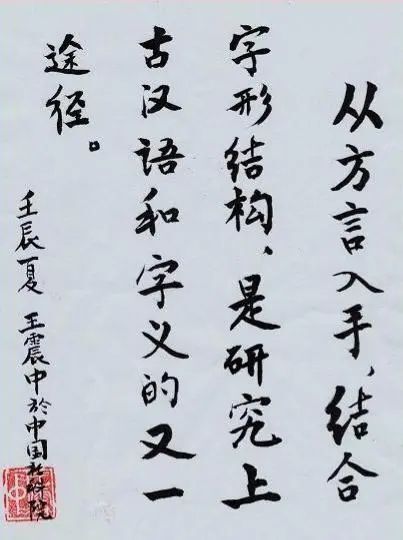 从方言入手，结合
字形结构，是研究上
古汉语和字义的又一
途径。
壬辰夏 王震中於中国社科院